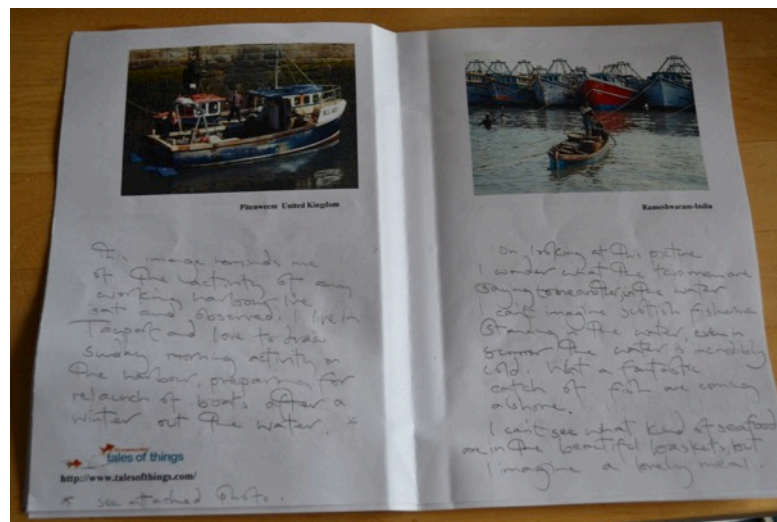 Pittenweem United Kingdom
This image reminds me
of the activity of any
working harbour I've
sat and observed. I live in
Tayport and love to draw
Sunday morning activity on
the harbour, preparing for
relaunch of boats after a
winter out the water. *
tales of things
http://www.talesofthings.com/
* see attached photo.
Rameshwaram-India
On looking at this picture
I wonder what the two men are
saying to one another in the water
I can't imagine scottish fishermen
standing in the water, even in
summer the water is incredibly
cold. What a fantastic
catch of fish are coming
ashore.
I can't see what kind of seafood
are in the beautiful baskets, but
I imagine a lovely meal.